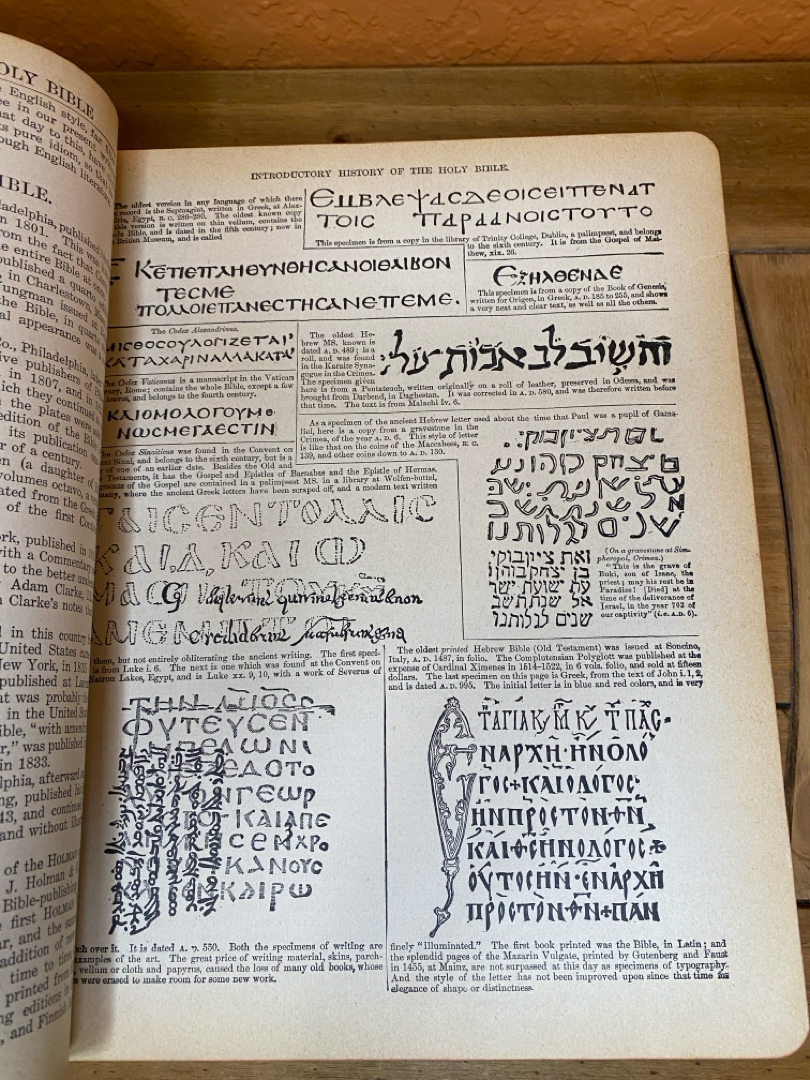 OLY BIBLE
English style, far
e in our present
at day to this, has
s pure idiom, so th
ough English literat
IBLE.
ladelphia, published
n 1801. This
rom the fact that
e entire Bible at
published a quarto
in Charlestown, M
ungman issued
the Bible, in quar
al appearance was
Co., Philadelphia,
ive publishers of
in 1807, and in
ich they continued
the plates were
edition of the Bib
its publication
r of a century.
en (a daughter of
volumes octavo, a
ated from the Gree
of the first Con
ork, published in
with a Commentary
to the better unde
Adam Clarke,
Clarke's notes
d in this country
United States
New York, in
published at
at was probably
in the United
ble, "with amen
r," was published
in 1833.
lphia, afterward
ng, published his
43, and continued
and without
of the HOLMAN
J. Holman &
Bible-publishing
first HOLMAN
ar, and the
addition of
time to time
printed from
ng editions
, and Finnish
INTRODUCTORY HISTORY OF THE HOLY BIBLE.
The oldest version in any language of which there
record is the Septuagint, written in Greek, at Alex-
ria, Egypt, B. C. 286-280. The oldest known copy
this version is written on thin vellum, contains the
le Bible, and is dated in the fifth century; now in
British Museum, and is called
ΕΜΒΛΕΨΑCΔΕΟΙCΕΙΠΕΝΑΤ
ΤΟΙC ΠΑΡΑΑΝΟΙCΤΟΥΤΟ
This specimen is from a copy in the library of Trinity College, Dublin, a palimpsest, and belongs
to the sixth century. It is from the Gospel of Mat-
thew, xix. 26.
ΚΕΤΙΕΠΛΗΘΥΝΘΗCΑΝΟΙΘΛΙΒΟΝ
ΤΕCΜΕ
ΠΟΛΛΟΙΕΠΑΝΕCΤΗCΑΝΕΠΕΜΕ.
ΕΞΗΛΘΕΝΔΕ
This specimen is from a copy of the Book of Genesis,
written for Origen, in Greek, A. D. 185 to 255, and shows
a very neat and clear text, as well as all the others.
The Codex Alexandrinus.
ΜΙCΘΟCΟΥΛΟΓΙΖΕΤΑΙ
ΚΑΤΑΧΑΡΙΝΑΛΛΑΚΑΤΑ
The Codex Vaticanus is a manuscript in the Vatican
rary, Rome; contains the whole Bible, except a few
leaves, and belongs to the fourth century.
The oldest He-
brew MS. known is
dated A. D. 489; is a
roll, and was found
in the Karaite Syna-
gogue in the Crimea.
The specimen given
here is from a Pentateuch, written originally on a roll of leather, preserved in Odessa, and was
brought from Darbend, in Daghestan. It was corrected in A. D. 580, and was therefore written before
that time. The text is from Malachi iv. 6.
והשיב לב אבות על
ΚΑΙΟΜΟΛΟΓΟΥΜΕ
ΝΩCΜΕΓΑΕCΤΙΝ
The Codex Sinaiticus was found in the Convent on
nt Sinai, and belongs to the sixth century, but is a
y of one of an earlier date. Besides the Old and
Testaments, it has the Gospel and Epistles of Barnabas and the Epistle of Hermas.
gments of the Gospel are contained in a palimpsest MS. in a library at Wolfen-buttel,
many, where the ancient Greek letters have been scraped off, and a modern text written
As a specimen of the ancient Hebrew letter used about the time that Paul was a pupil of Gama-
liel, here is a copy from a gravestone in the
Crimea, of the year A. D. 6. This style of letter
is like that on the coins of the Maccabees, B. C.
139, and other coins down to A. D. 130.
ΤΑΙCΕΝΤΟΛΑΙC
ΚΑΙΔΙΚΑΙΩ
זאת ציון בוקי
בן יצחק כוהן נו
עת ישועת ישר
אל שנת תשב
שנים לגלותנו
(On a gravestone at Sim-
pheropol, Crimea.)
"This is the grave of
Buki, son of Isaac, the
priest; may his rest be in
Paradise! [Died] at the
time of the deliverance of
Israel, in the year 702 of
our captivity" (i.e. A.D. 6).
them, but not entirely obliterating the ancient writing. The first speci-
is from Luke i. 6. The next is one which was found at the Convent on
Natron Lakes, Egypt, and is Luke xx. 9, 10, with a work of Severus of
The oldest printed Hebrew Bible (Old Testament) was issued at Soncino,
Italy, A. D. 1487, in folio. The Complutensian Polyglott was published at the
expense of Cardinal Ximenes in 1514-1522, in 6 vols. folio, and sold at fifteen
dollars. The last specimen on this page is Greek, from the text of John i. 1, 2,
and is dated A. D. 995. The initial letter is in blue and red colors, and is very
ΦΥΤΕΥCΕΝ
ΑΜΠΕΛΩΝΑ
ΞΕΔΟΤΟ
ΓΕΩΡ
ΚΑΙΑΠΕ
CΕΝΧΡΟ
ΚΑΝΟΥC
ΕΝΚΑΙΡΩ
ΕΝΑΡΧΗ·ΗΝΟΛΟ
ΓΟC+ΚΑΙΟΛΟΓΟC·
ΗΝΠΡΟCΤΟΝ·ΘΝ,
ΚΑΙΘCΗΝΟΛΟΓΟC+
ΟΥΤΟCΗΝ·ΕΝΑΡΧΗ
ΠΡΟCΤΟΝ·ΘΝ+ΠΑΝ
ch over it. It is dated A. D. 550. Both the specimens of writing are
examples of the art. The great price of writing material, skins, parch-
, vellum or cloth and papyrus, caused the loss of many old books, whose
s were erased to make room for some new work.
finely "illuminated." The first book printed was the Bible, in Latin; and
the splendid pages of the Mazarin Vulgate, printed by Gutenberg and Faust
in 1455, at Mainz, are not surpassed at this day as specimens of typography.
And the style of the letter has not been improved upon since that time for
elegance of shape or distinctness.